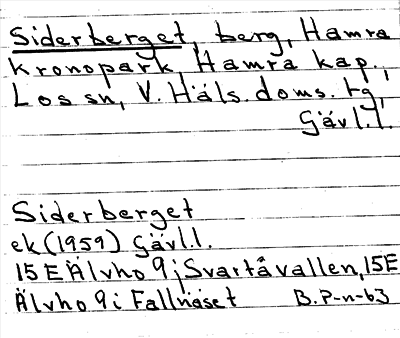 Siderberget, berg, Hamra
Kronopark Hamra kap.,
Los sn, V. Häls. doms. tg,
Gävl.l.
Siderberget
ek (1959) Gävl.l.
15E Älvho 9 i Svartåvallen, 15E
Älvho 9 i Fallnäset B.P-n-63